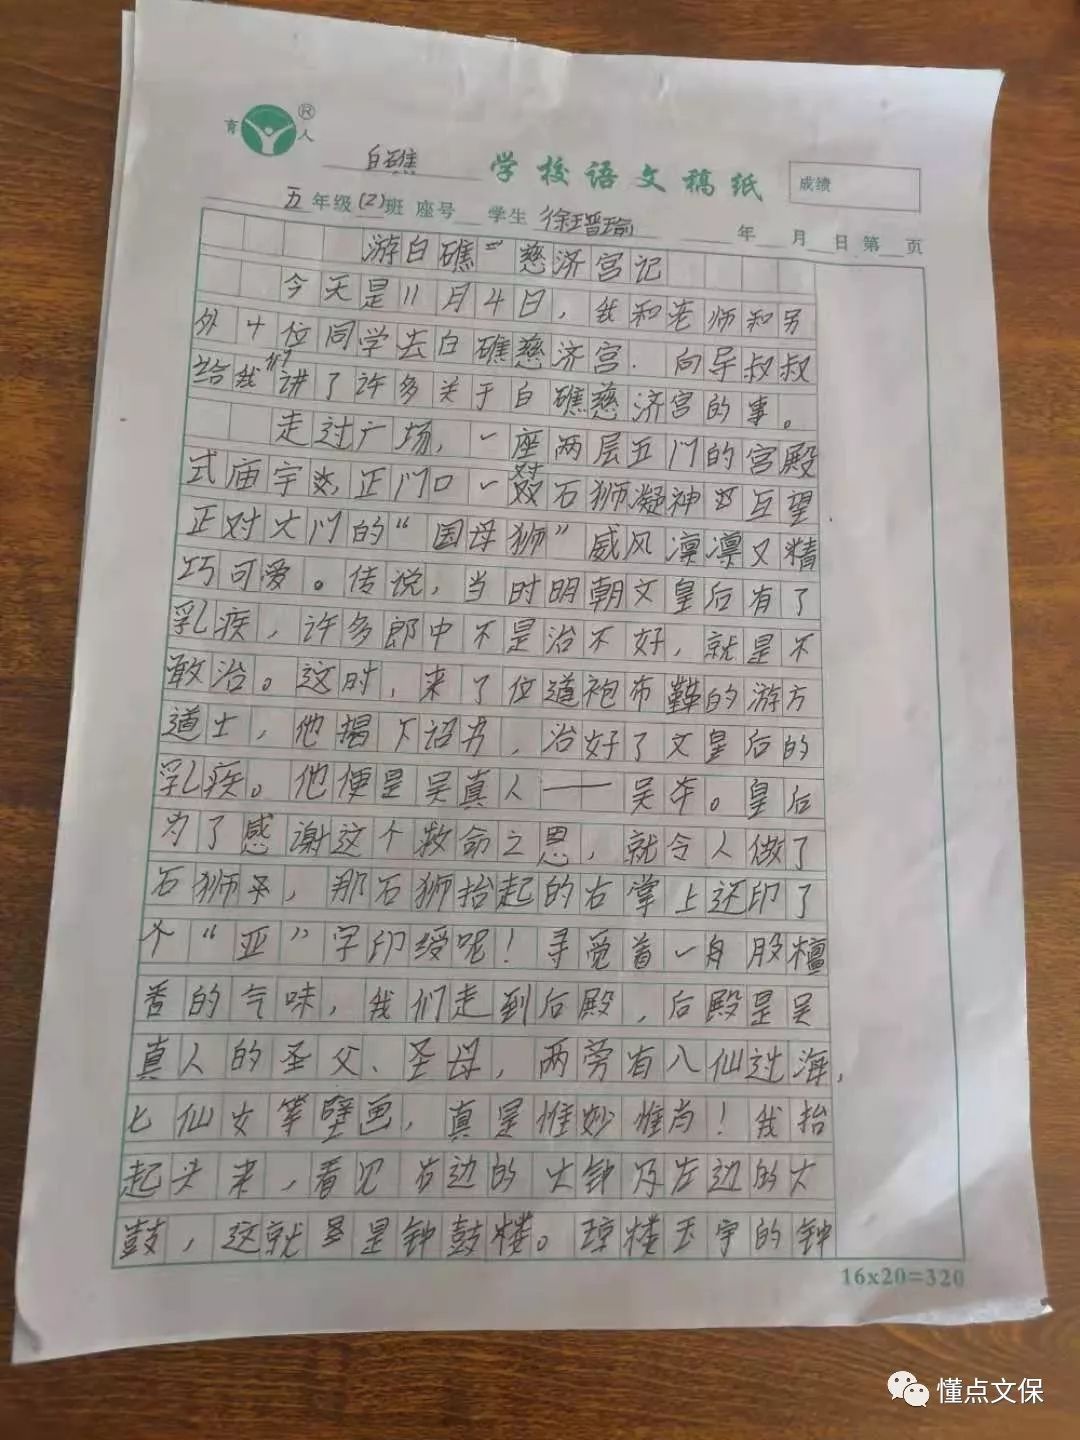 育人®
白礁 学校语文稿纸 成绩
五年级(2)班 座号 学生 徐瑨瑜 年 月 日 第 页
游白礁慈济宫记
今天是11月4日，我和老师和另
外十位同学去白礁慈济宫．向导叔叔
给我们讲了许多关于白礁慈济宫的事。
走过广场，一座两层五门的宫殿
式庙宇 正门口一对石狮凝神互望
正对大门的“国母狮”威风凛凛又精
巧可爱。传说，当时明朝文皇后有了
乳疾，许多郎中不是治不好，就是不
敢治。这时，来了位道袍布鞋的游方
道士，他揭下诏书，治好了文皇后的
乳疾。他便是吴真人——吴夲。皇后
为了感谢这个救命之恩，就令人做了
石狮子，那石狮抬起的右掌上还印了
个“亚”字印绶呢！寻觅着一股檀
香的气味，我们走到后殿，后殿是吴
真人的圣父、圣母，两旁有八仙过海，
七仙女等壁画，真是惟妙惟肖！我抬
起头来，看见右边的大钟及左边的大
鼓，这就是钟鼓楼。琼楼玉宇的钟
16x20=320
懂点文保